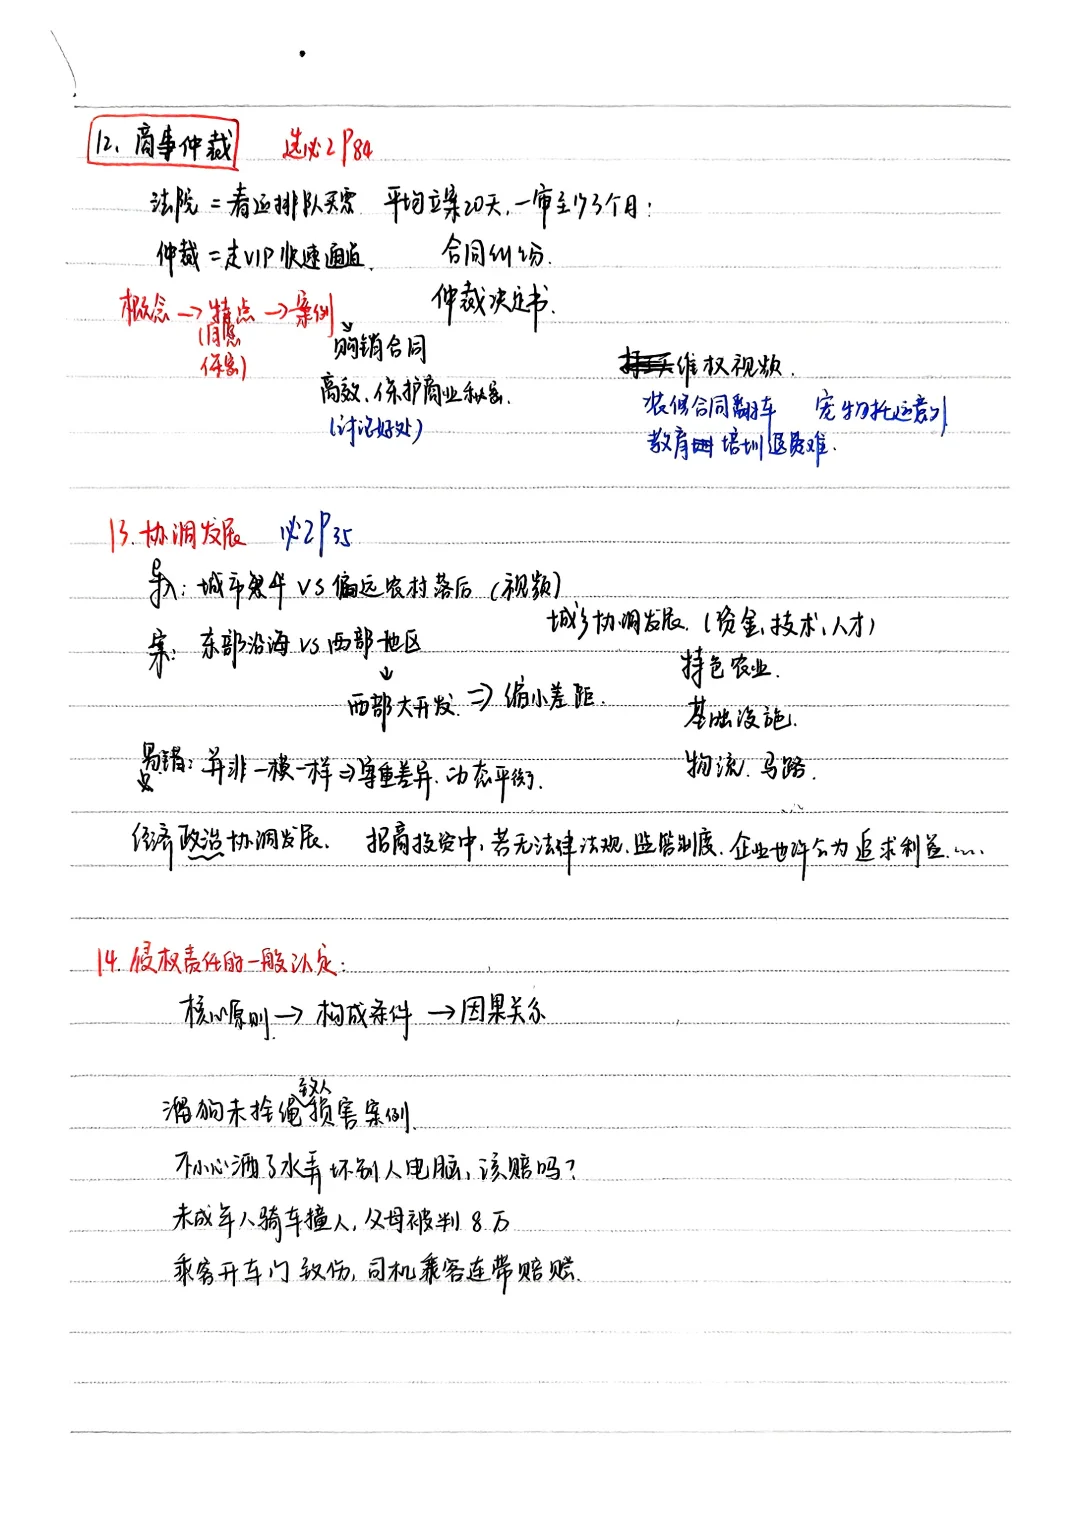 12、商事仲裁 选必2 P84
法院=春运排队买票 平均立案20天,一审至少3个月:
仲裁=走VIP快速通道. 合同纠纷.
仲裁决定书.
概念→特点→案例
(自愿
保密)
购销合同
高效、保护商业秘密.
(讨论好处)
维权视频.
装修合同翻车 宠物托运意外
教育培训退费难.
13.协调发展 必2 P35
导入:城市繁华 VS 偏远农村落后(视频)
城乡协调发展.(资金、技术、人才)
案:东部沿海 VS 西部地区
特色农业.
西部大开发.⇒缩小差距.
基础设施.
易错:并非一模一样⇒尊重差异、动态平衡.
物流.马路.
经济政治协调发展. 招商投资中,若无法律法规、监管制度、企业也许会为追求利益.....
14.侵权责任的一般认定:
核心原则→构成条件→因果关系
溜狗未拴绳致人损害案例.
不小心洒了水弄坏别人电脑,该赔吗?
未成年人骑车撞人,父母被判8万
乘客开车门致伤,司机乘客连带赔赔.